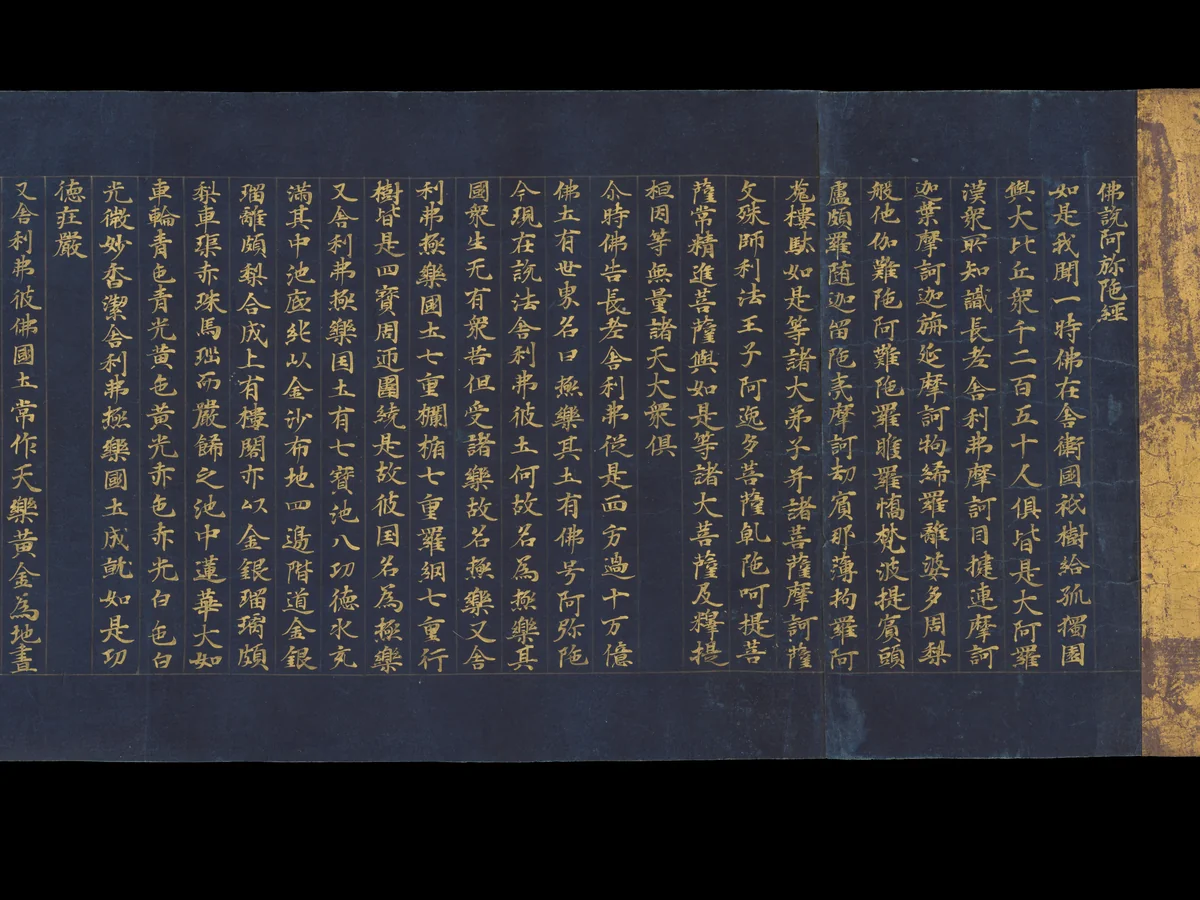 佛說阿弥陁經
如是我聞一時佛在舍衛國祇樹給孤獨園
與大比丘衆千二百五十人俱皆是大阿羅
漢衆所知識長老舍利弗摩訶目揵連摩訶
迦葉摩訶迦旃延摩訶拘絺羅離婆多周梨
般他伽難陁阿難陁羅睺羅憍梵波提賓頭
盧頗羅随迦留陁夷摩訶劫賓那薄拘羅阿
㝹樓駄如是等諸大弟子并諸菩薩摩訶薩
文殊師利法王子阿逸多菩薩乹陁呵提菩
薩常精進菩薩與如是等諸大菩薩及釋提
桓因等無量諸天大衆俱
尒時佛告長老舍利弗從是西方過十万億
佛土有世界名曰極樂其土有佛号阿弥陁
今現在說法舍利弗彼土何故名為極樂其
國衆生无有衆苦但受諸樂故名極樂又舍
利弗極樂國土七重欄楯七重羅網七重行
樹皆是四寶周迊圍繞是故彼国名為極樂
又舍利弗極樂国土有七寶池八功德水充
滿其中池底純以金沙布地四邊階道金銀
瑠離頗梨合成上有樓閣亦以金銀瑠璃頗
梨車璖赤珠馬瑙而嚴餝之池中蓮華大如
車輪青色青光黄色黄光赤色赤光白色白
光微妙香潔舍利弗極樂國土成就如是功
德莊嚴
又舍利弗彼佛國土常作天樂黄金為地晝